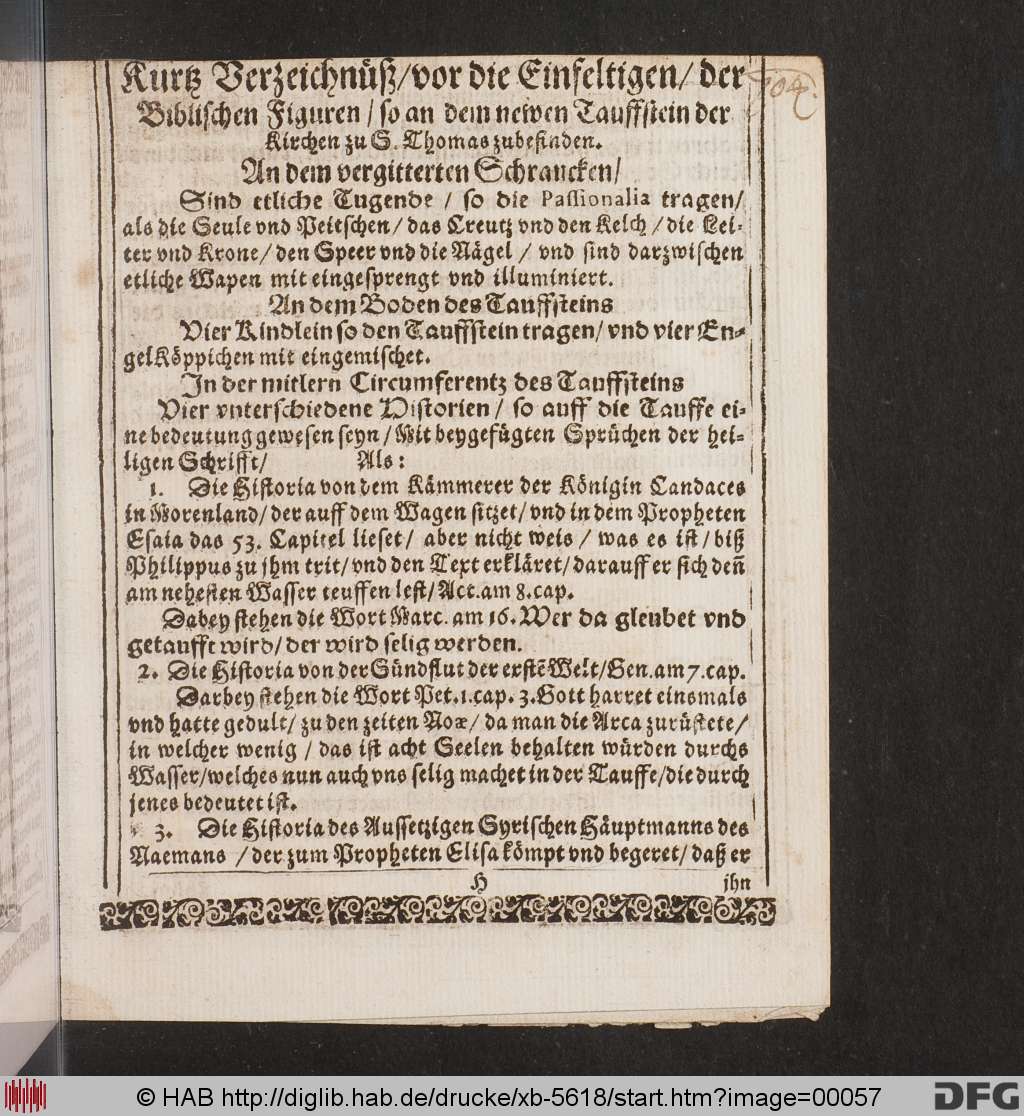 104.
Kurtz Verzeichnüß/vor die Einfeltigen/ der
Biblischen Figuren / so an dem newen Tauffstein der
Kirchen zu S. Thomas zubefinden.
An dem vergitterten Schrancken/
Sind etliche Tugende / so die Passionalia tragen/
als die Seule vnd Peitschen / das Creutz vnd den Kelch / die Lei-
ter vnd Krone / den Speer vnd die Nägel / vnd sind darzwischen
etliche Wapen mit eingesprengt vnd illuminiert.
An dem Boden des Tauffsteins
Vier Kindlein so den Tauffstein tragen/ vnd vier En-
gelKöppichen mit eingemischet.
In der mitlern Circumferentz des Tauffsteins
Vier vnterschiedene Historien / so auff die Tauffe ei-
ne bedeutung gewesen seyn / Mit beygefügten Sprüchen der hei-
ligen Schrifft/ Als:
1. Die Historia von dem Kämmerer der Königin Candaces
in Morenland/ der auff dem Wagen sitzet/ vnd in dem Propheten
Esaia das 53. Capitel lieset/ aber nicht weis / was es ist / biß
Philippus zu jhm trit/ vnd den Text erkläret/ darauff er sich deñ
am nehesten Wasser teuffen lest/ Act. am 8. cap.
Dabey stehen die Wort Marc. am 16. Wer da gleubet vnd
getaufft wird/ der wird selig werden.
2. Die Historia von der Sündflut der erstẽ Welt/ Gen. am 7. cap.
Darbey stehen die Wort Pet. 1. cap. 3. Gott harret einsmals
vnd hatte gedult/ zu den zeiten Noæ / da man die Arca zurüstete/
in welcher wenig / das ist acht Seelen behalten würden durchs
Wasser/ welches nun auch vns selig machet in der Tauffe/ die durch
jenes bedeutet ist.
3. Die Historia des Aussetzigen Syrischen Häuptmanns des
Naemans / der zum Propheten Elisa kömpt vnd begeret/ daß er
H jhn
© HAB http://diglib.hab.de/drucke/xb-5618/start.htm?image=00057
DFG